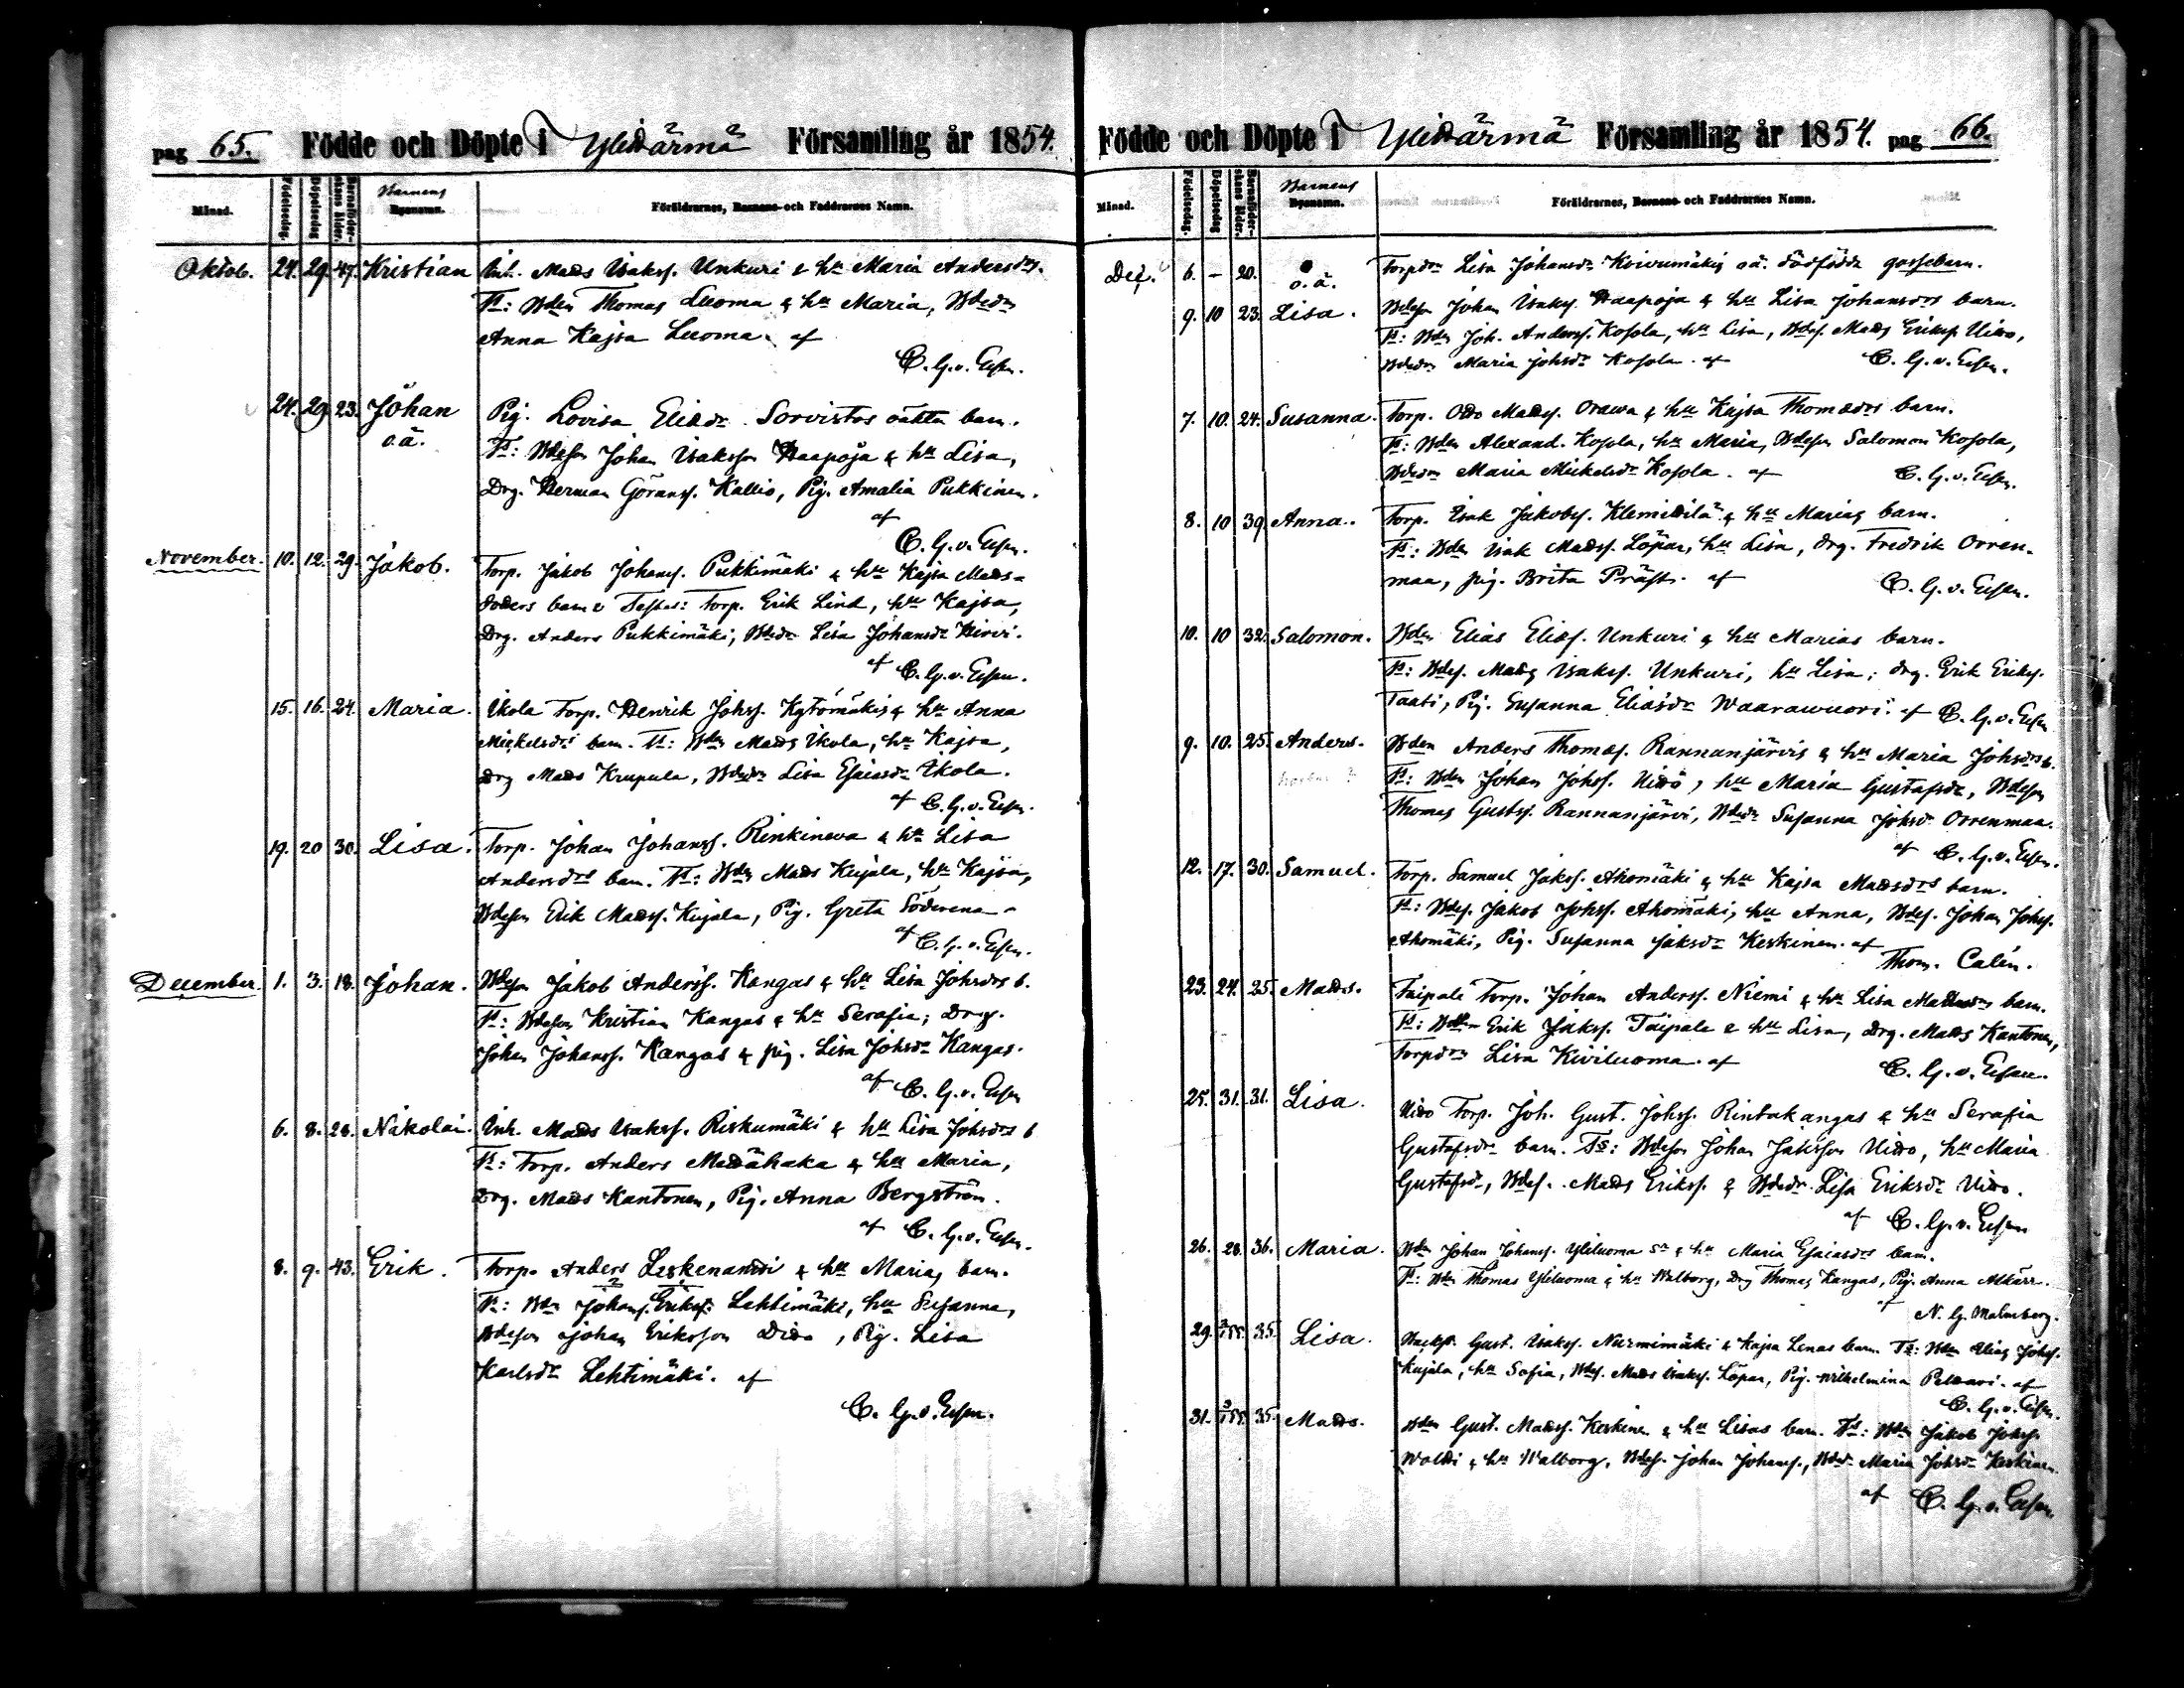 pag 65. Födde och Döpte i Ylihärmä Församling år 1854.
Månad. Födelsedag. Döpelsedag Barnaföderskans ålder. Barnens Byanamn. Föräldrarnes, Barnens och Faddrarnes Namn.
Oktob. 24. 29. 47. Kristian Inh. Mads Isakss. Unkuri & hu Maria Andersdrs.
Ts: Bden Thomas Luoma & hu Maria, Bdedr
Anna Kajsa Luoma. af
C. G. v. Essen.
24. 29. 23. Johan Pig. Lovisa Eliædr Sorvistos oäkta barn.
o.ä. Ts: Bdeson Johan Isaksson Haapoja & hu Lisa,
Drg. Herman Göranss. Kallio, Pig. Amalia Pukkinen.
af
C. G. v. Essen.
November. 10. 12. 29. Jakob. Torp. Jakob Johanss. Pukkimäki & hu Kajsa Mads-
doters barn. Testes: Torp. Erik Lind, hu Kajsa,
Drg. Anders Pukkimäki, Bdedr Lisa Johansdr Hirvi.
af C. G. v. Essen.
15. 16. 24. Maria. Ikola Torp. Henrik Johss. Kytömäkis & hu Anna
Mickelsdrs barn. Ts: Bden Mads Ikola, hu Kajsa,
Drg Mads Krupula, Bdedr Lisa Esaiasdr Ikola.
af C. G. v. Essen.
19. 20 30. Lisa. Torp. Johan Johanss. Rinkineva & hu Lisa
Andersdrs barn. Ts: Bden Mads Kujala, hu Kajsa,
Bdeson Erik Madss. Kujala, Pig. Greta Söderena
af C. G. v. Essen.
December. 1. 3. 18. Johan. Bdeson Jakob Anderss. Kangas & hu Lisa Johsdrs b.
Ts: Bdeson Kristian Kangas & hu Serafia; Drg.
Johan Johanss. Kangas & pig. Lisa Johsdr Kangas.
af C. G. v. Essen
6. 8. 28. Nikolai. Inh. Mads Isakss. Riskumäki & hu Lisa Johsdrs b
Ts: Torp. Anders Mediähaka & hu Maria,
Drg. Mads Kantonen, Pig. Anna Bergström.
af C. G. v. Essen.
8. 9. 43. Erik. Torp. Anders Leskenandi & hu Marias barn.
Ts: Bden Johans. Erikss. Lehtimäki, hu Susanna,
Bdeson Johan Eriksson, Pig. Lisa
Karlsdr Lehtimäki. af
C. G. v. Essen.
Födde och Döpte i Ylihärmä Församling år 1854. pag 66.
Månad. Födelsedag. Döpelsedag Barnaföderskans ålder. Barnens Byanamn. Föräldrarnes, Barnens och Faddrarnes Namn.
Dec. 6. - 20. o.ä. Torpdr Lisa Johansdr Koivumäkis oä. dödfödda gossebarn.
9. 10 23. Lisa. Bdeson Johan Isakss. Haapoja & hu Lisa Johansdrs barn.
Ts: Bden Joh. Anderss. Kosola, hu Lisa, Bdes. Mads Erikss. Uitto,
Bdedr Maria Johsdr Kosola. af C. G. v. Essen.
7. 10. 24. Susanna. Torp. Otto Madss. Orawa & hu Kajsa Thomædrs barn.
Ts: Bden Alexand. Kosola, hu Maria, Bdeson Salomon Kosola,
Bdedr Maria Mickelsdr Kosola. af C. G. v. Essen.
8. 10 39. Anna. Torp. Isak Jakobss. Klemettilä & hu Marias barn.
Ts: Bden Isak Madss. Löpar, hu Lisa, drg. Fredrik Orren-
maa, pig. Brita Präst. af C. G. v. Essen.
10. 10 32. Salomon. Bden Elias Eliæs. Unkuri & hu Marias barn.
Ts: Bdes. Mads Isakss. Unkuri, hu Lisa; drg. Erik Erikss.
Taati, Pig. Susanna Eliasdr Waarawuori. af C. G. v. Essen
9. 10. 25. Anders. Bden Anders Thomæs. Rannanjärvis & hu Maria Johsdrs b.
Ts: Bden Johan Johss. Uitto, hu Maria Gustafsdr, Bdeson
Thomas Gustss. Rannanjärvi, Bdedr Susanna Johsdr Orrenmaa.
af C. G. v. Essen.
12. 17. 30. Samuel. Torp. Samuel Jakss. Ahomäki & hu Kajsa Madsdrs barn.
Ts: Bdes. Jakob Johss. Ahomäki, hu Anna, Bdes. Johan Johss.
Ahomäki, Pig. Susanna Jaksdr Keskinen. af
Thom. Calén.
23. 24. 25. Mads. Taipale Torp. Johan Anderss. Niemi & hu Lisa Madsdrs barn.
Ts: Bden Erik Jakss. Taipale & hu Lisa, Drg. Mads Kantonen,
Torpdr Lisa Kiviluoma. af C. G. v. Essen.
25. 31. 31. Lisa. Uitto Torp. Joh. Gust. Johss. Rintakangas & hu Serafia
Gustafsdr barn. Ts: Bdeson Johan Jaksson Uitto, hu Maria
Gustafsdr, Bdes. Mads Erikss. & Bdedr Lisa Eriksdr Uitto.
af C. G. v. Essen
26. 28. 36. Maria. Bden Johan Johanss. Yliluoma sr & hu Maria Esaiasdrs barn.
Ts: Bden Thomas Yliluoma & hu Walborg, Drg Thomas Kangas, Pig. Anna Alkärr.
af N. G. Malmberg.
29. 1/55. 35. Lisa. Backst. Gust. Isakss. Nurmimäki & Kajsa Lenas barn. Ts: Bden Elias Johss.
Kujala, hu Sofia, Bdes. Mads Isakss. Löpar, Pig. Wilhelmina Peltoari. af
C. G. v. Essen.
31. 3/1 55. 35. Mads. Bden Gust. Madss. Keskinen & hu Lisas barn. Ts: Bden Jakob Johss.
Woldi & hu Walborg, Bdes. Johan Johanss., Bdedr Maria Johsdr Keskinen
af C. G. v. Essen.